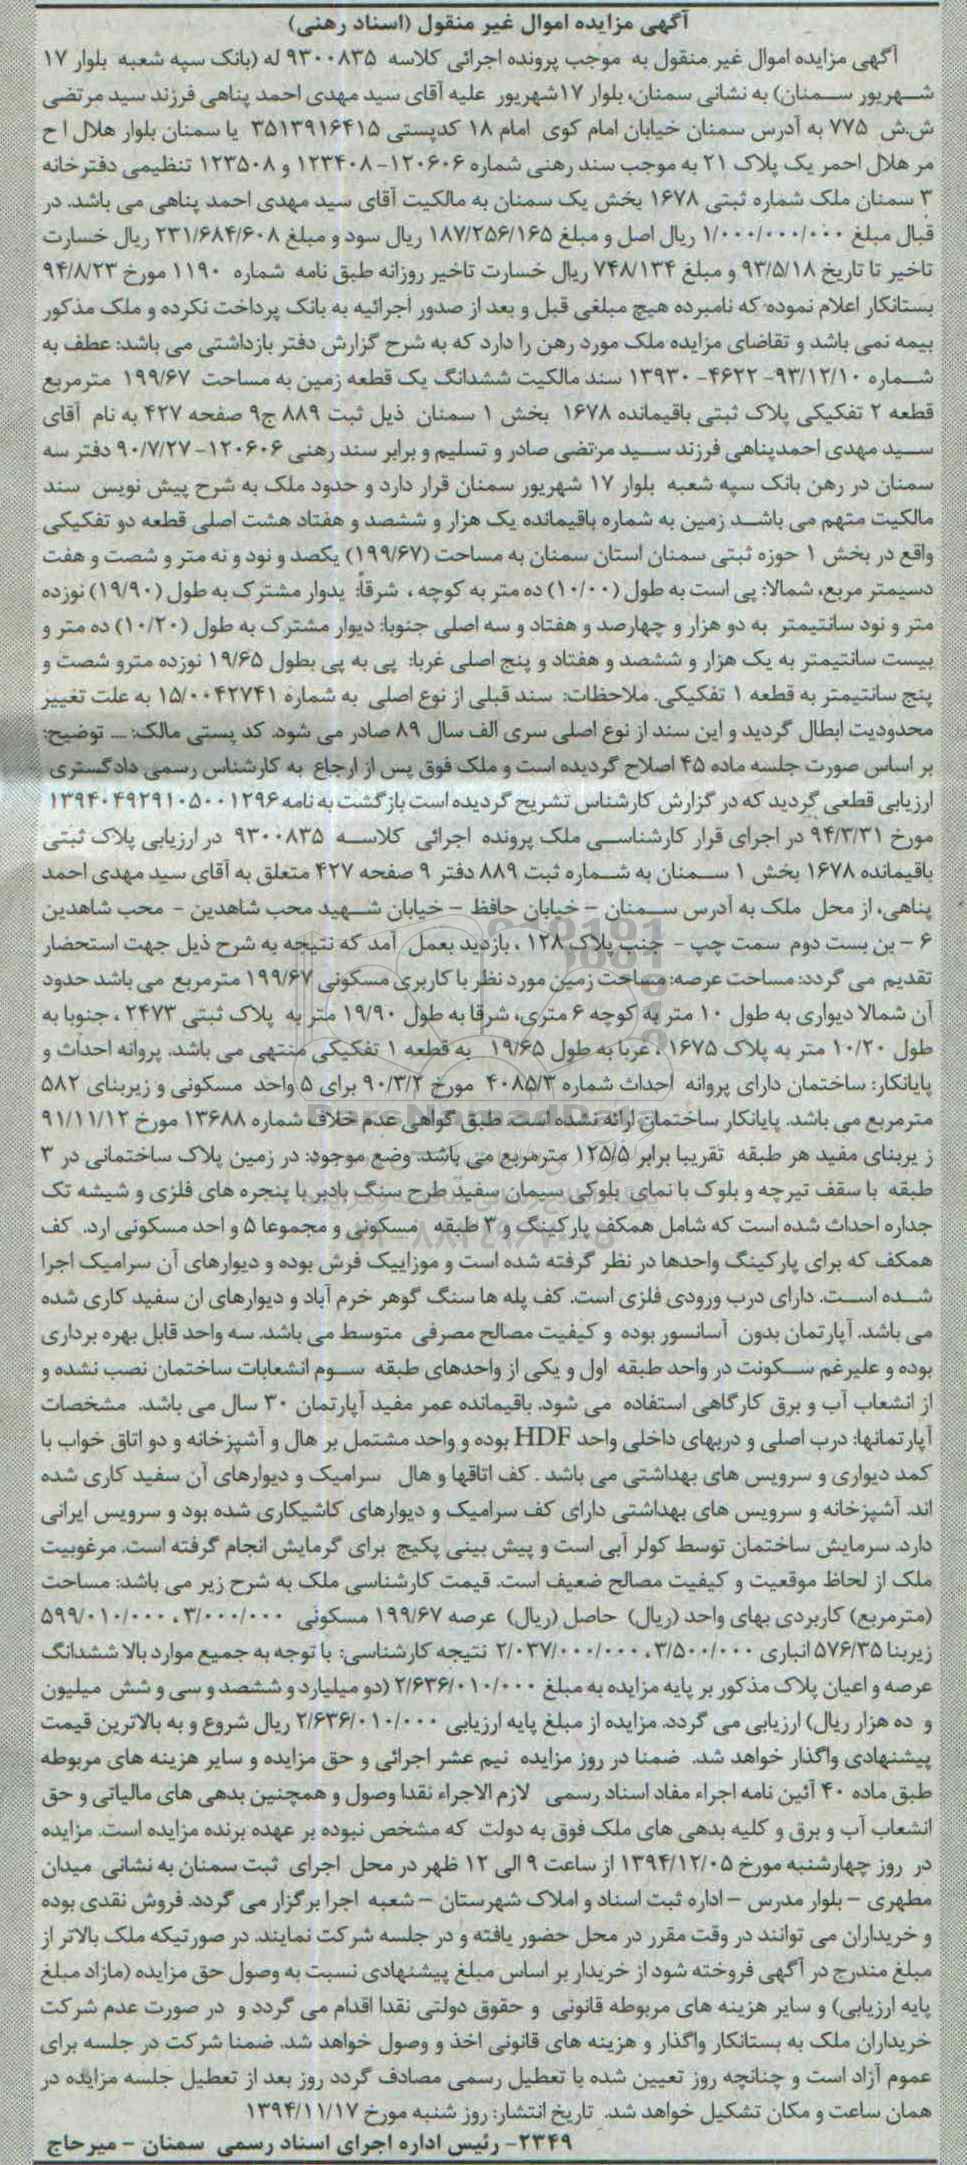 آگهی مزایده اموال غیر منقول (اسناد رهنی)
آگهی مزایده اموال غیر منقول به موجب پرونده اجرائی کلاسه ۹۳۰۰۸۳۵ له (بانک سپه شعبه بلوار ۱۷
شهریور سمنان) به نشانی سمنان، بلوار ۱۷شهریور علیه آقای سید مهدی احمد پناهی فرزند سید مرتضی
ش.ش ۷۷۵ به آدرس سمنان خیابان امام کوی امام ۱۸ کدپستی ۳۵۱۳۹۱۶۴۱۵ یا سمنان بلوار هلال ا ح
مر هلال احمر یک پلاک ۲۱ به موجب سند رهنی شماره ۱۲۰۶۰۶- ۱۲۳۴۰۸ و ۱۲۳۵۰۸ تنظیمی دفترخانه
۳ سمنان ملک شماره ثبتی ۱۶۷۸ بخش یک سمنان به مالکیت آقای سید مهدی احمد پناهی می باشد. در
قبال مبلغ ۱/۰۰۰/۰۰۰/۰۰۰ ریال اصل و مبلغ ۱۸۷/۲۵۶/۱۶۵ ریال سود و مبلغ ۲۳۱/۶۸۴/۶۰۸ ریال خسارت
تاخیر تا تاریخ ۹۳/۵/۱۸ و مبلغ ۷۴۸/۱۳۴ ریال خسارت تاخیر روزانه طبق نامه شماره ۱۱۹۰ مورخ ۹۴/۸/۲۳
بستانکار اعلام نموده که نامبرده هیچ مبلغی قبل و بعد از صدور اجرائیه به بانک پرداخت نکرده و ملک مذکور
بیمه نمی باشد و تقاضای مزایده ملک مورد رهن را دارد که به شرح گزارش دفتر بازداشتی می باشد: عطف به
شماره ۹۳/۱۲/۱۰- ۴۶۲۲- ۱۳۹۳۰ سند مالکیت ششدانگ یک قطعه زمین به مساحت ۱۹۹/۶۷ مترمربع
قطعه ۲ تفکیکی پلاک ثبتی باقیمانده ۱۶۷۸ بخش ۱ سمنان ذیل ثبت ۸۸۹ ج۹ صفحه ۴۲۷ به نام آقای
سید مهدی احمدپناهی فرزند سید مرتضی صادر و تسلیم و برابر سند رهنی ۱۲۰۶۰۶- ۹۰/۷/۲۷ دفتر سه
سمنان در رهن بانک سپه شعبه بلوار ۱۷ شهریور سمنان قرار دارد و حدود ملک به شرح پیش نویس سند
مالکیت متهم می باشد زمین به شماره باقیمانده یک هزار و ششصد و هفتاد هشت اصلی قطعه دو تفکیکی
واقع در بخش ۱ حوزه ثبتی سمنان استان سمنان به مساحت (۱۹۹/۶۷) یکصد و نود و نه متر و شصت و هفت
دسیمتر مربع، شمالا: پی است به طول (۱۰/۰۰) ده متر به کوچه ، شرقاً: بدوار مشترک به طول (۱۹/۹۰) نوزده
متر و نود سانتیمتر به دو هزار و چهارصد و هفتاد و سه اصلی جنوبا: دیوار مشترک به طول (۱۰/۲۰) ده متر و
بیست سانتیمتر به یک هزار و ششصد و هفتاد و پنج اصلی غربا: پی به پی بطول ۱۹/۶۵ نوزده مترو شصت و
پنج سانتیمتر به قطعه ۱ تفکیکی. ملاحظات: سند قبلی از نوع اصلی به شماره ۱۵/۰۰۴۲۷۴۱ به علت تغییر
محدودیت ابطال گردید و این سند از نوع اصلی سری الف سال ۸۹ صادر می شود. کد پستی مالک: ... توضیح:
بر اساس صورت جلسه ماده ۴۵ اصلاح گردیده است و ملک فوق پس از ارجاع به کارشناس رسمی دادگستری
ارزیابی قطعی گردید که در گزارش کارشناس تشریح گردیده است بازگشت به نامه ۱۳۹۴۰۴۹۲۹۱۰۵۰۰۱۲۹۶
مورخ ۹۴/۳/۳۱ در اجرای قرار کارشناسی ملک پرونده اجرائی کلاسه ۹۳۰۰۸۳۵ در ارزیابی پلاک ثبتی
باقیمانده ۱۶۷۸ بخش ۱ سمنان به شماره ثبت ۸۸۹ دفتر ۹ صفحه ۴۲۷ متعلق به آقای سید مهدی احمد
پناهی، از محل ملک به آدرس سمنان – خیابان حافظ – خیابان شهید محب شاهدین - محب شاهدین
۶ – بن بست دوم سمت چپ - جنب پلاک ۱۲۸ ، بازدید بعمل آمد که نتیجه به شرح ذیل جهت استحضار
تقدیم می گردد: مساحت عرصه: مساحت زمین مورد نظر با کاربری مسکونی ۱۹۹/۶۷ مترمربع می باشد حدود
آن شمالا دیواری به طول ۱۰ متر به کوچه ۶ متری، شرقا به طول ۱۹/۹۰ متر به پلاک ثبتی ۲۴۷۳ ، جنوبا به
طول ۱۰/۲۰ متر به پلاک ۱۶۷۵ ، غربا به طول ۱۹/۶۵ به قطعه ۱ تفکیکی منتهی می باشد. پروانه احداث و
پایانکار: ساختمان دارای پروانه احداث شماره ۴۰۸۵/۳ مورخ ۹۰/۳/۲ برای ۵ واحد مسکونی و زیربنای ۵۸۲
مترمربع می باشد. پایانکار ساختمان ارائه نشده است. طبق گواهی عدم خلاف شماره ۱۳۶۸۸ مورخ ۹۱/۱۱/۱۲
زیربنای مفید هر طبقه تقریبا برابر ۱۲۵/۵ مترمربع می باشد. وضع موجود: در زمین پلاک ساختمانی در ۳
طبقه با سقف تیرچه و بلوک با نمای بلوکی سیمان سفید طرح سنگ بادبر با پنجره های فلزی و شیشه تک
جداره احداث شده است که شامل همکف پارکینگ و ۳ طبقه مسکونی و مجموعا ۵ واحد مسکونی ارد. کف
همکف که برای پارکینگ واحدها در نظر گرفته شده است و موزاییک فرش بوده و دیوارهای آن سرامیک اجرا
شده است. دارای درب ورودی فلزی است. کف پله ها سنگ گوهر خرم آباد و دیوارهای ان سفید کاری شده
می باشد. آپارتمان بدون آسانسور بوده و کیفیت مصالح مصرفی متوسط می باشد. سه واحد قابل بهره برداری
بوده و علیرغم سکونت در واحد طبقه اول و یکی از واحدهای طبقه سوم انشعابات ساختمان نصب نشده و
از انشعاب آب و برق کارگاهی استفاده می شود. باقیمانده عمر مفید آپارتمان ۳۰ سال می باشد. مشخصات
آپارتمانها: درب اصلی و دربهای داخلی واحد HDF بوده و واحد مشتمل بر هال و آشپزخانه و دو اتاق خواب با
کمد دیواری و سرویس های بهداشتی می باشد . کف اتاقها و هال سرامیک و دیوارهای آن سفید کاری شده
اند. آشپزخانه و سرویس های بهداشتی دارای کف سرامیک و دیوارهای کاشیکاری شده بود و سرویس ایرانی
دارد. سرمایش ساختمان توسط کولر آبی است و پیش بینی پکیج برای گرمایش انجام گرفته است. مرغوبیت
ملک از لحاظ موقعیت و کیفیت مصالح ضعیف است. قیمت کارشناسی ملک به شرح زیر می باشد: مساحت
(مترمربع) کاربردی بهای واحد (ریال) حاصل (ریال) عرصه ۱۹۹/۶۷ مسکونی ۳/۰۰۰/۰۰۰ ، ۵۹۹/۰۱۰/۰۰۰
زیربنا ۵۷۶/۳۵ انباری ۳/۵۰۰/۰۰۰ ، ۲/۰۳۷/۰۰۰/۰۰۰ نتیجه کارشناسی: با توجه به جمیع موارد بالا ششدانگ
عرصه و اعیان پلاک مذکور بر پایه مزایده به مبلغ ۲/۶۳۶/۰۱۰/۰۰۰ (دو میلیارد و ششصد و سی و شش میلیون
و ده هزار ریال) ارزیابی می گردد. مزایده از مبلغ پایه ارزیابی ۲/۶۳۶/۰۱۰/۰۰۰ ریال شروع و به بالاترین قیمت
پیشنهادی واگذار خواهد شد. ضمنا در روز مزایده نیم عشر اجرائی و حق مزایده و سایر هزینه های مربوطه
طبق ماده ۴۰ آئین نامه اجراء مفاد اسناد رسمی لازم الاجراء نقدا وصول و همچنین بدهی های مالیاتی و حق
انشعاب آب و برق و کلیه بدهی های ملک فوق به دولت که مشخص نبوده بر عهده برنده مزایده است. مزایده
در روز چهارشنبه مورخ ۱۳۹۴/۱۲/۰۵ از ساعت ۹ الی ۱۲ ظهر در محل اجرای ثبت سمنان به نشانی میدان
مطهری – بلوار مدرس – اداره ثبت اسناد و املاک شهرستان – شعبه اجرا برگزار می گردد. فروش نقدی بوده
و خریداران می توانند در وقت مقرر در محل حضور یافته و در جلسه شرکت نمایند. در صورتیکه ملک بالاتر از
مبلغ مندرج در آگهی فروخته شود از خریدار بر اساس مبلغ پیشنهادی نسبت به وصول حق مزایده (مازاد مبلغ
پایه ارزیابی) و سایر هزینه های مربوطه قانونی و حقوق دولتی نقدا اقدام می گردد و در صورت عدم شرکت
خریداران ملک به بستانکار واگذار و هزینه های قانونی اخذ و وصول خواهد شد. ضمنا شرکت در جلسه برای
عموم آزاد است و چنانچه روز تعیین شده با تعطیل رسمی مصادف گردد روز بعد از تعطیل جلسه مزایده در
همان ساعت و مکان تشکیل خواهد شد. تاریخ انتشار: روز شنبه مورخ ۱۳۹۴/۱۱/۱۷
۲۳۴۹- رئیس اداره اجرای اسناد رسمی سمنان - میرحاج